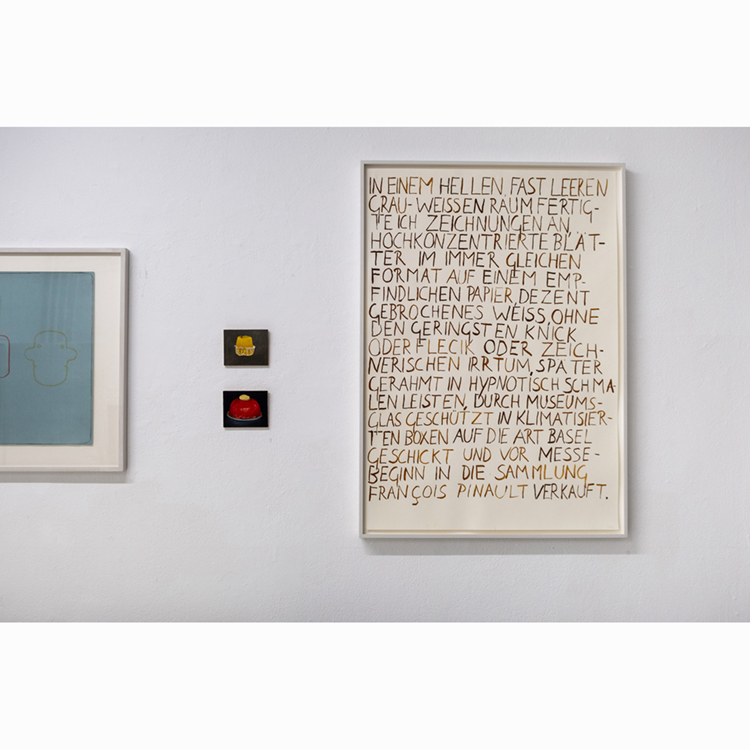 IN EINEM HELLEN, FAST LEEREN
GRAU-WEISSEN RAUM FERTIG-
TE ICH ZEICHNUNGEN AN,
HOCHKONZENTRIERTE BLÄT-
TER IM IMMER GLEICHEN
FORMAT AUF EINEM EMP-
FINDLICHEN PAPIER, DEZENT
GEBROCHENES WEISS, OHNE
DEN GERINGSTEN KNICK
ODER FLECK ODER ZEICH-
NERISCHEN IRRTUM, SPÄTER
GERAHMT IN HYPNOTISCH SCHMA-
LEN LEISTEN, DURCH MUSEUMS-
GLAS GESCHÜTZT IN KLIMATISIER-
TEN BOXEN AUF DIE ART BASEL
GESCHICKT UND VOR MESSE-
BEGINN IN DIE SAMMLUNG
FRANÇOIS PINAULT VERKAUFT.